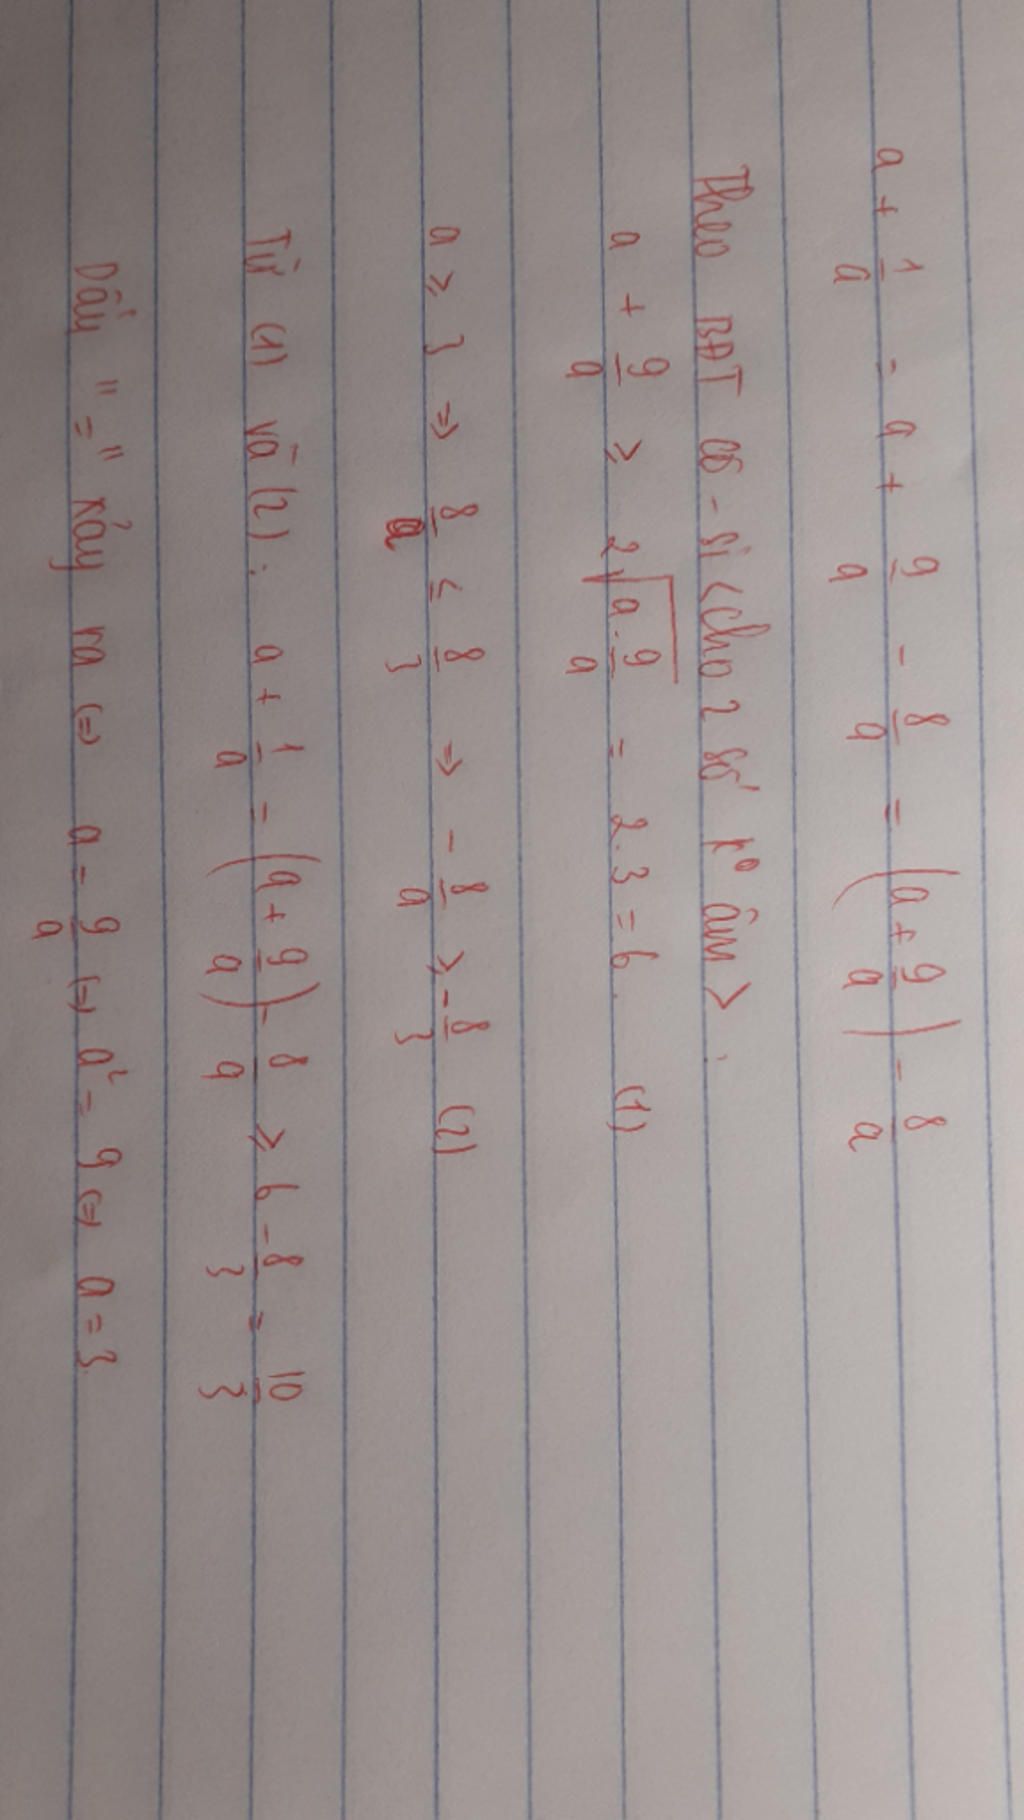 a + 1/a = a + 9/a - 8/a = (a + 9/a) - 8/a
Theo BĐT cô-si <cho 2 số k° âm>:
a + 9/a ≥ 2√(a.9/a) = 2.3 = 6. (1)
a ≥ 3 => 8/a ≤ 8/3 => -8/a ≥ -8/3 (2)
Từ (1) và (2): a + 1/a = (a + 9/a) - 8/a ≥ 6 - 8/3 = 10/3
Dấu "=" xảy ra <=> a = 9/a <=> a² = 9 <=> a = 3.